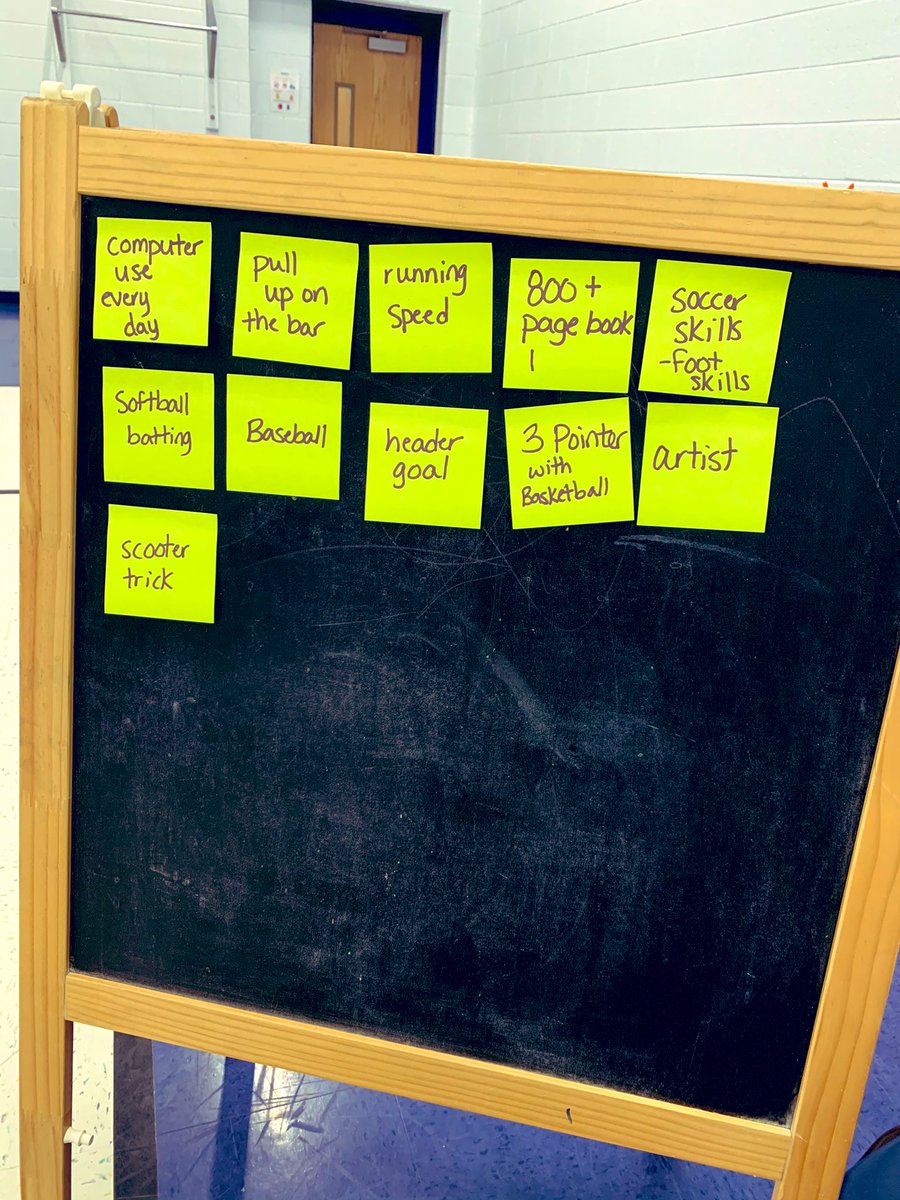 computer
use
every
day
pull
up on
the bar
running
speed
800+
page book
1
soccer
skills
-foot
skills
Softball
batting
Baseball
header
goal
3 Pointer
with
Basketball
artist
scooter
trick